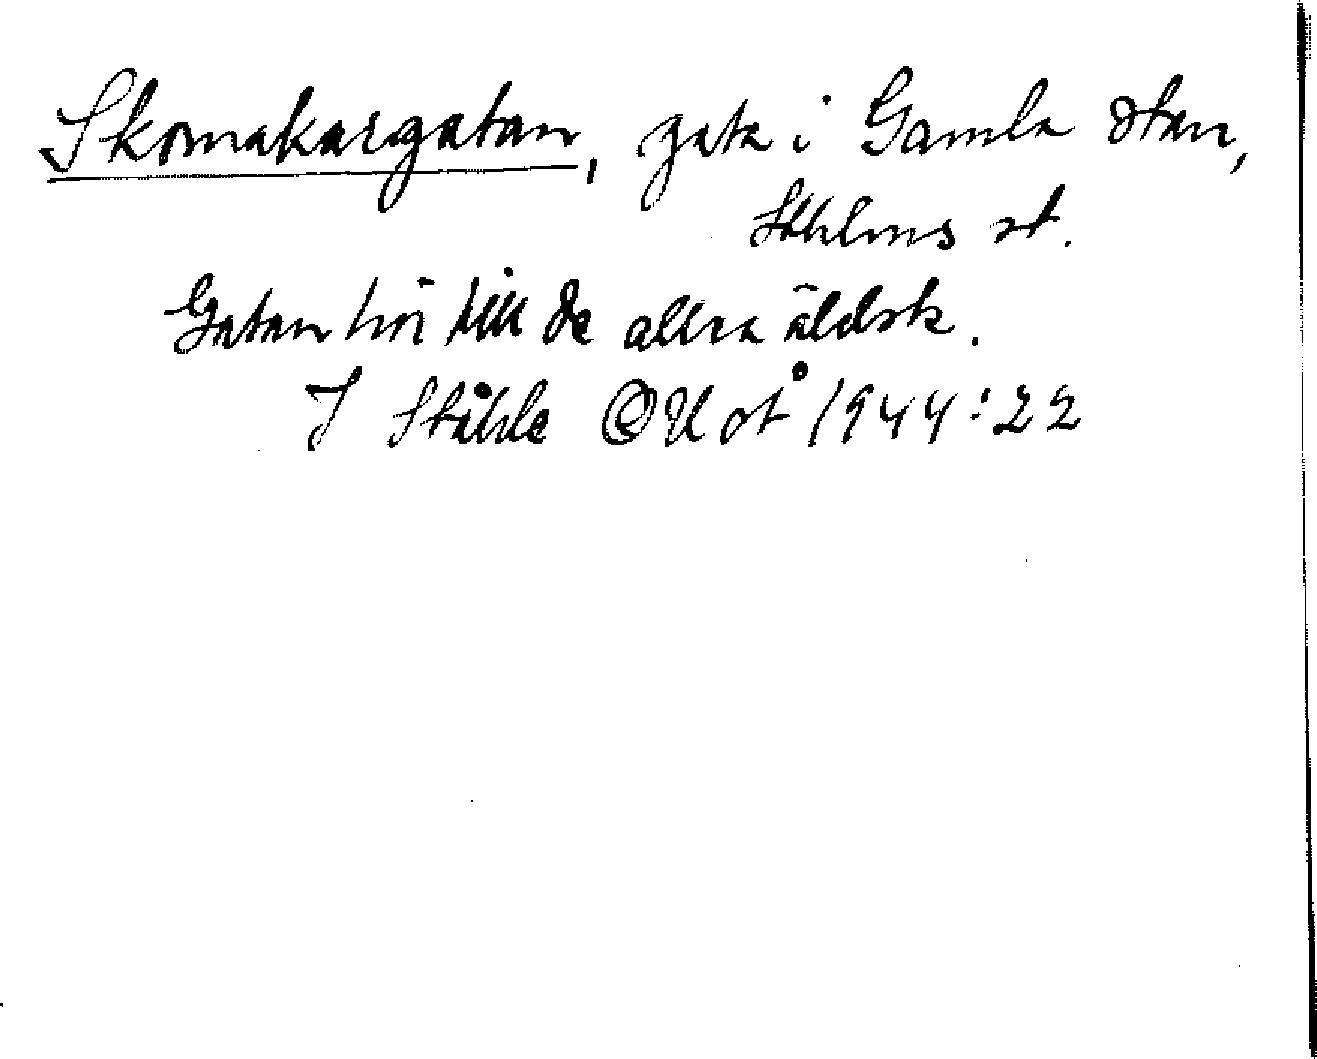 Skomakargatan, gata i Gamla stan,
Sthlms st.
Gatan hör till de allra äldsta.
I Ståhle OUÅ 1944:22